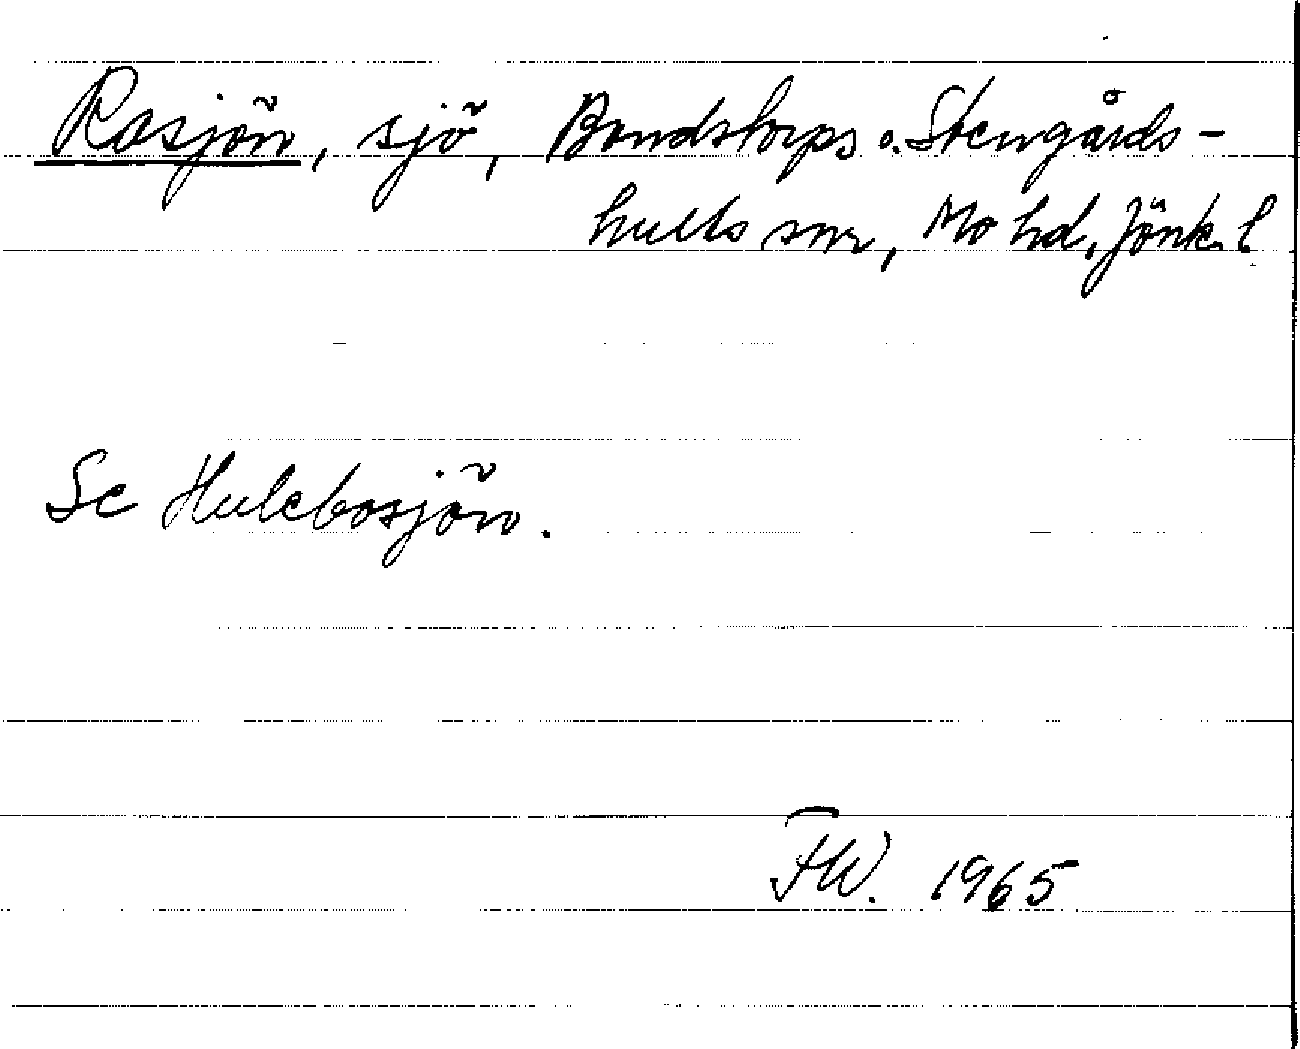 Rasjön, sjö, Bondstorps o. Stengårds-
hults snr, Mo hd, Jönk. l.
Se Hulebosjön.
FW. 1965